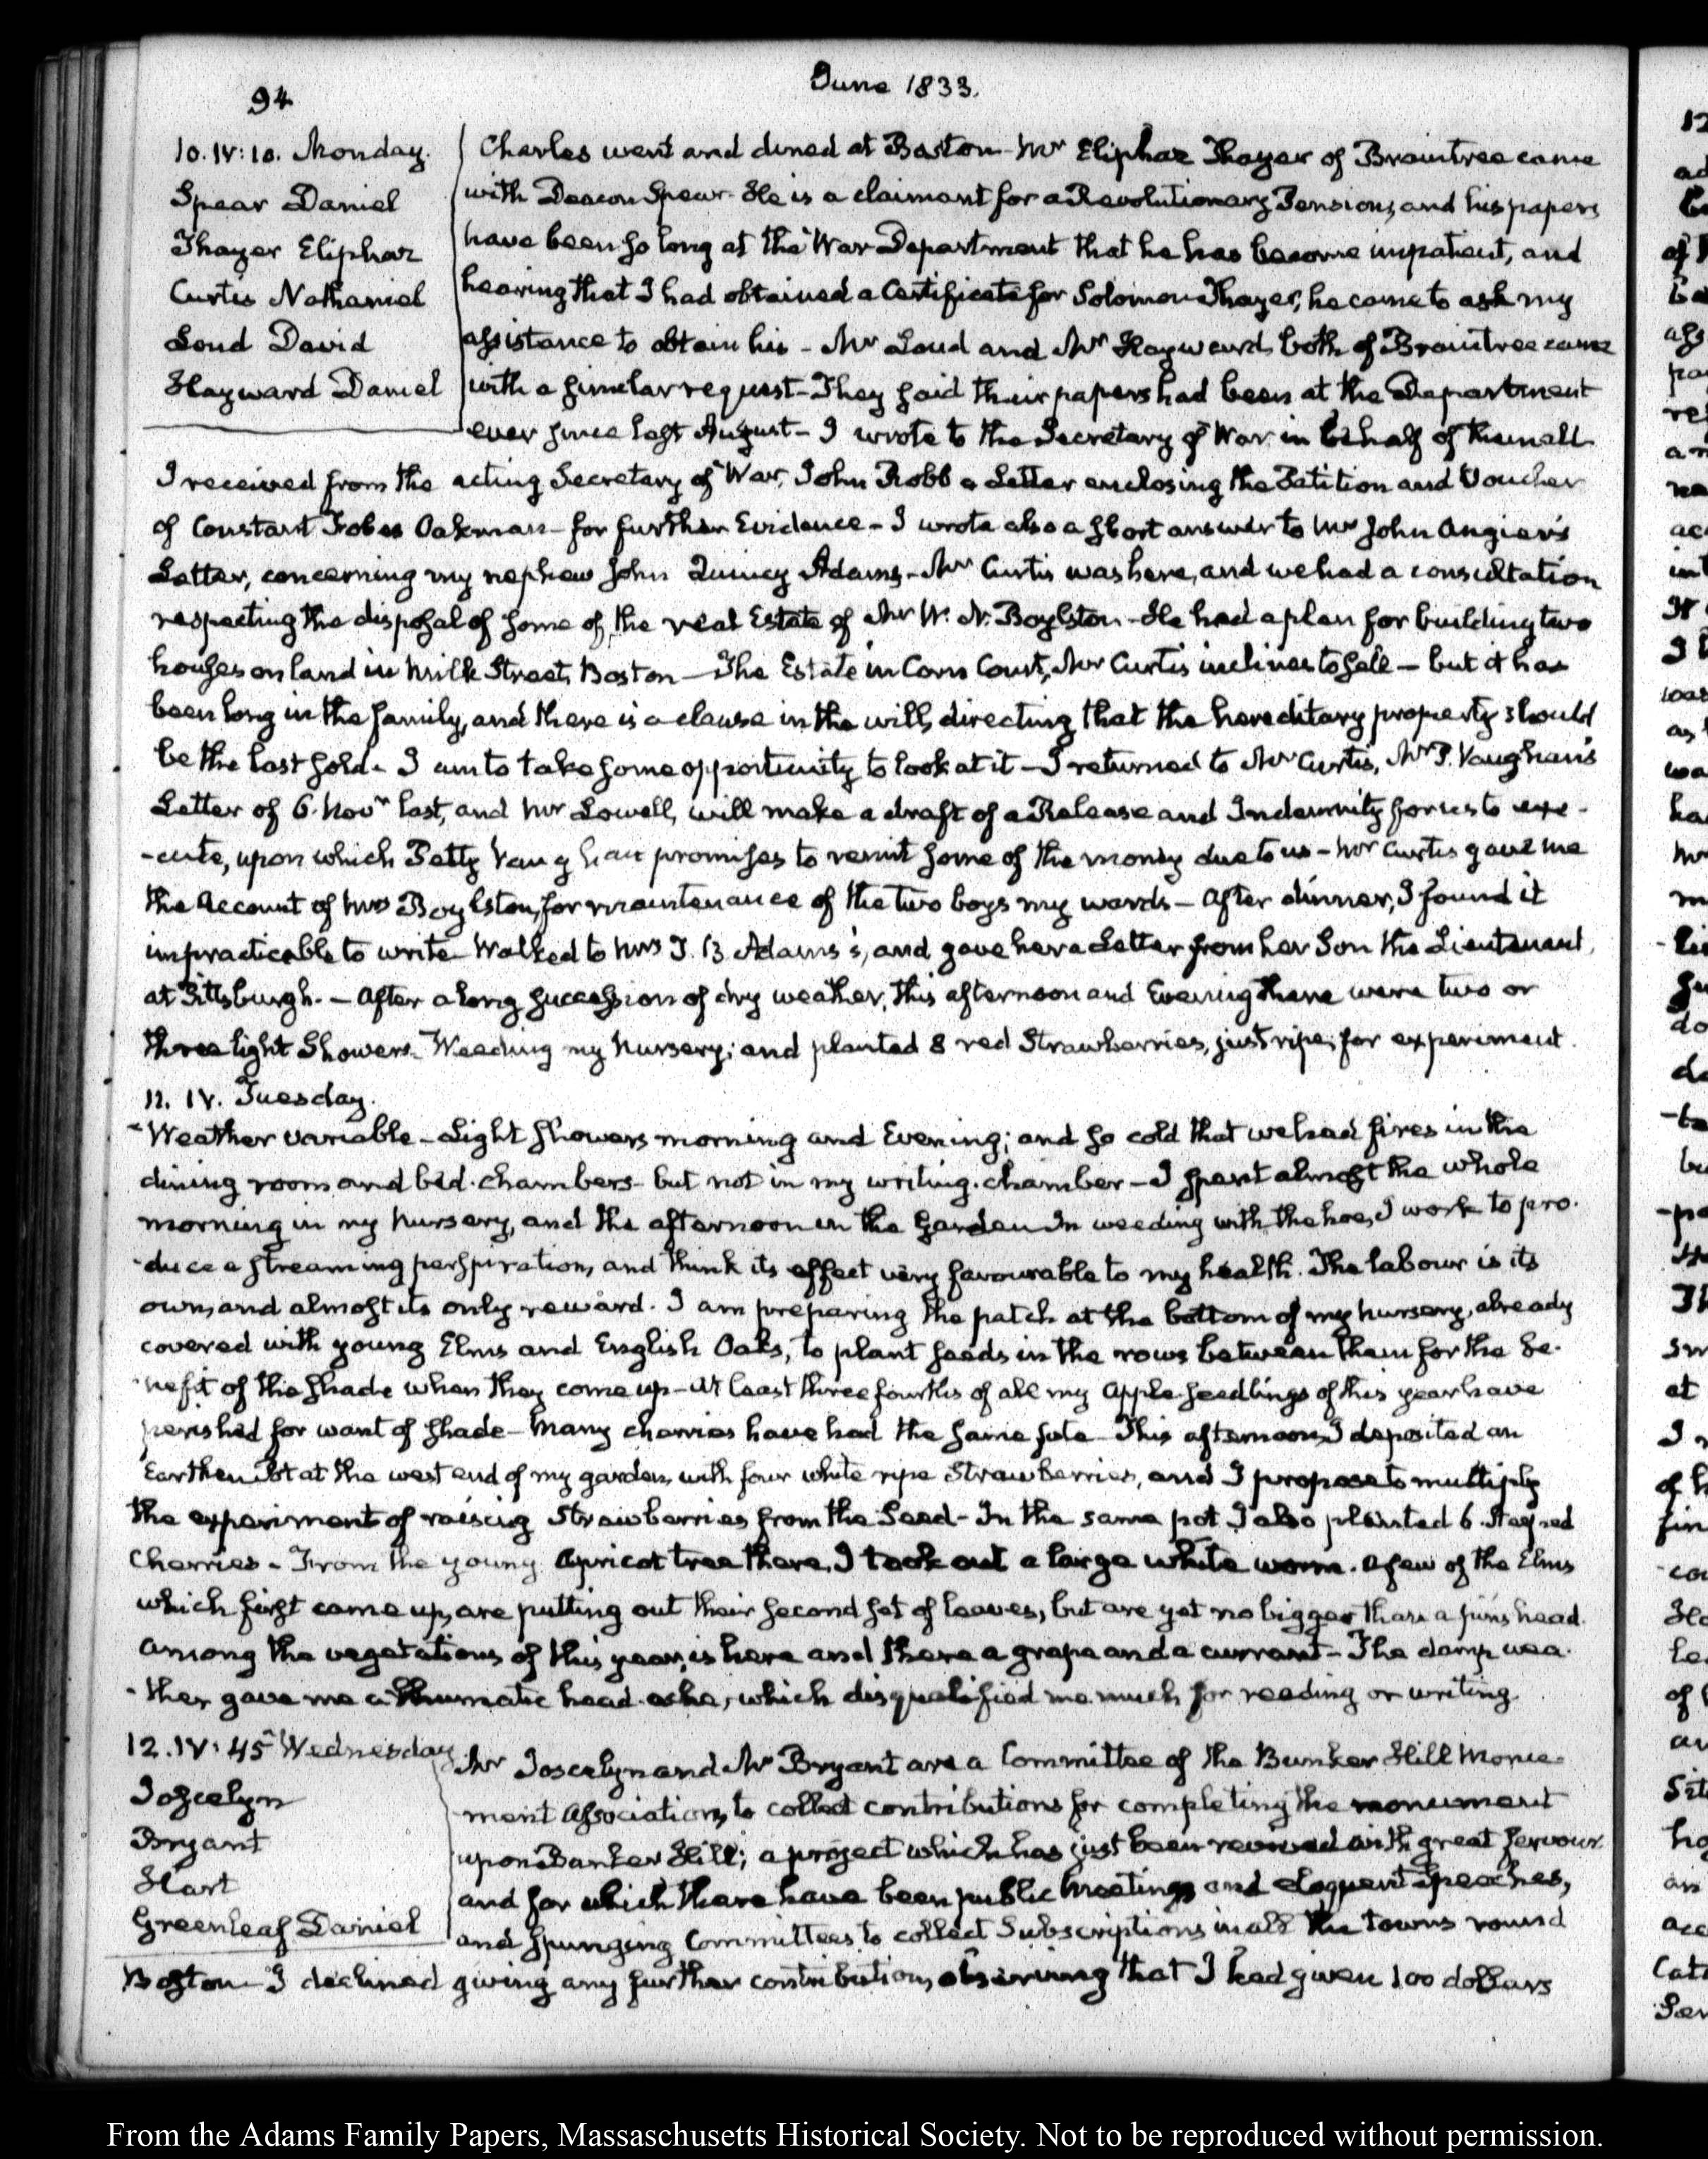 94
June 1833.
10. IV:10. Monday.
Spear Daniel
Thayer Eliphaz
Curtis Nathaniel
Loud David
Hayward Daniel
Charles went and dined at Boston. Mr Eliphaz Thayer of Braintree came
with Deacon Spear. He is a claimant for a Revolutionary Pension, and his papers
have been so long at the War Department that he has become impatient, and
hearing that I had obtained a Certificate for Solomon Thayer, he came to ask my
assistance to obtain his - Mr Loud and Mr Hayward, both of Braintree came
with a similar request - They said their papers had been at the Department
ever since last August - I wrote to the Secretary of War in behalf of them all.
I received from the acting Secretary of War, John Robb a Letter enclosing the Petition and Voucher
of Constant Fobes Oakman - for further Evidence - I wrote also a short answer to Mr John Angier's
Letter, concerning my nephew John Quincy Adams - Mr Curtis was here, and we had a consultation
respecting the disposal of some of the real Estate of Mr W. N. Boylston - He had a plan for building two
houses on land in Milk Street, Boston - The Estate in Corn Court, Mr Curtis inclines to sell - but it has
been long in the family, and there is a clause in the will, directing that the hereditary property should
be the last sold - I am to take some opportunity to look at it - I returned to Mr Curtis, Mr P. Vaughan's
Letter of 6. Novr last, and Mr Lowell, will make a draft of a Release and Indemnity for us to exe-
-cute, upon which Petty Vaughan promises to remit some of the money due to us - Mr Curtis gave me
the Account of Mrs Boylston, for maintenance of the two boys my wards - After dinner, I found it
impracticable to write. Walked to Mrs T. B. Adams's, and gave her a Letter from her Son the Lieutenant,
at Pittsburgh. - After a long succession of dry weather, this afternoon and Evening there were two or
three light Showers. Weeding my Nursery; and planted 8 red Strawberries, just ripe, for experiment.
11. IV. Tuesday.
Weather variable - Light showers morning and Evening; and so cold that we had fires in the
dining room and bed-chambers - but not in my writing-chamber - I spent almost the whole
morning in my Nursery, and the afternoon in the Garden. In weeding with the hoe, I work to pro-
-duce a streaming perspiration, and think its effect very favourable to my health. The labour is its
own, and almost its only reward. I am preparing the patch at the bottom of my nursery, already
covered with young Elms and English Oaks, to plant seeds in the rows between them for the be-
-nefit of the shade when they come up - At least three fourths of all my Apple seedlings of this year have
perished for want of shade - Many cherries have had the same fate - This afternoon I deposited an
Earthen Pot at the west end of my garden, with four white ripe Strawberries, and I propose to multiply
the experiment of raising Strawberries from the Seed - In the same pot I also planted 6 red
Cherries - From the young Apricot tree there, I took out a large white worm. A few of the Elms
which first came up, are putting out their second set of leaves, but are yet no bigger than a pin's head.
Among the vegetations of this year, is here and there a grape and a currant - The damp wea-
-ther gave me a rheumatic head-ache, which disqualified me much for reading or writing.
12. IV:45 Wednesday
Joscelyn
Bryant
Hart
Greenleaf Daniel
Mr Joscelyn and Mr Bryant are a Committee of the Bunker Hill Monu-
ment Association, to collect contributions for completing the monument
upon Bunker Hill; a project which has just been renewed with great fervour
and for which there have been public meetings and eloquent Speeches,
and spunging Committees to collect Subscriptions in all the towns round
Boston - I declined giving any further contribution, observing that I had given 100 dollars
From the Adams Family Papers, Massachusetts Historical Society. Not to be reproduced without permission.